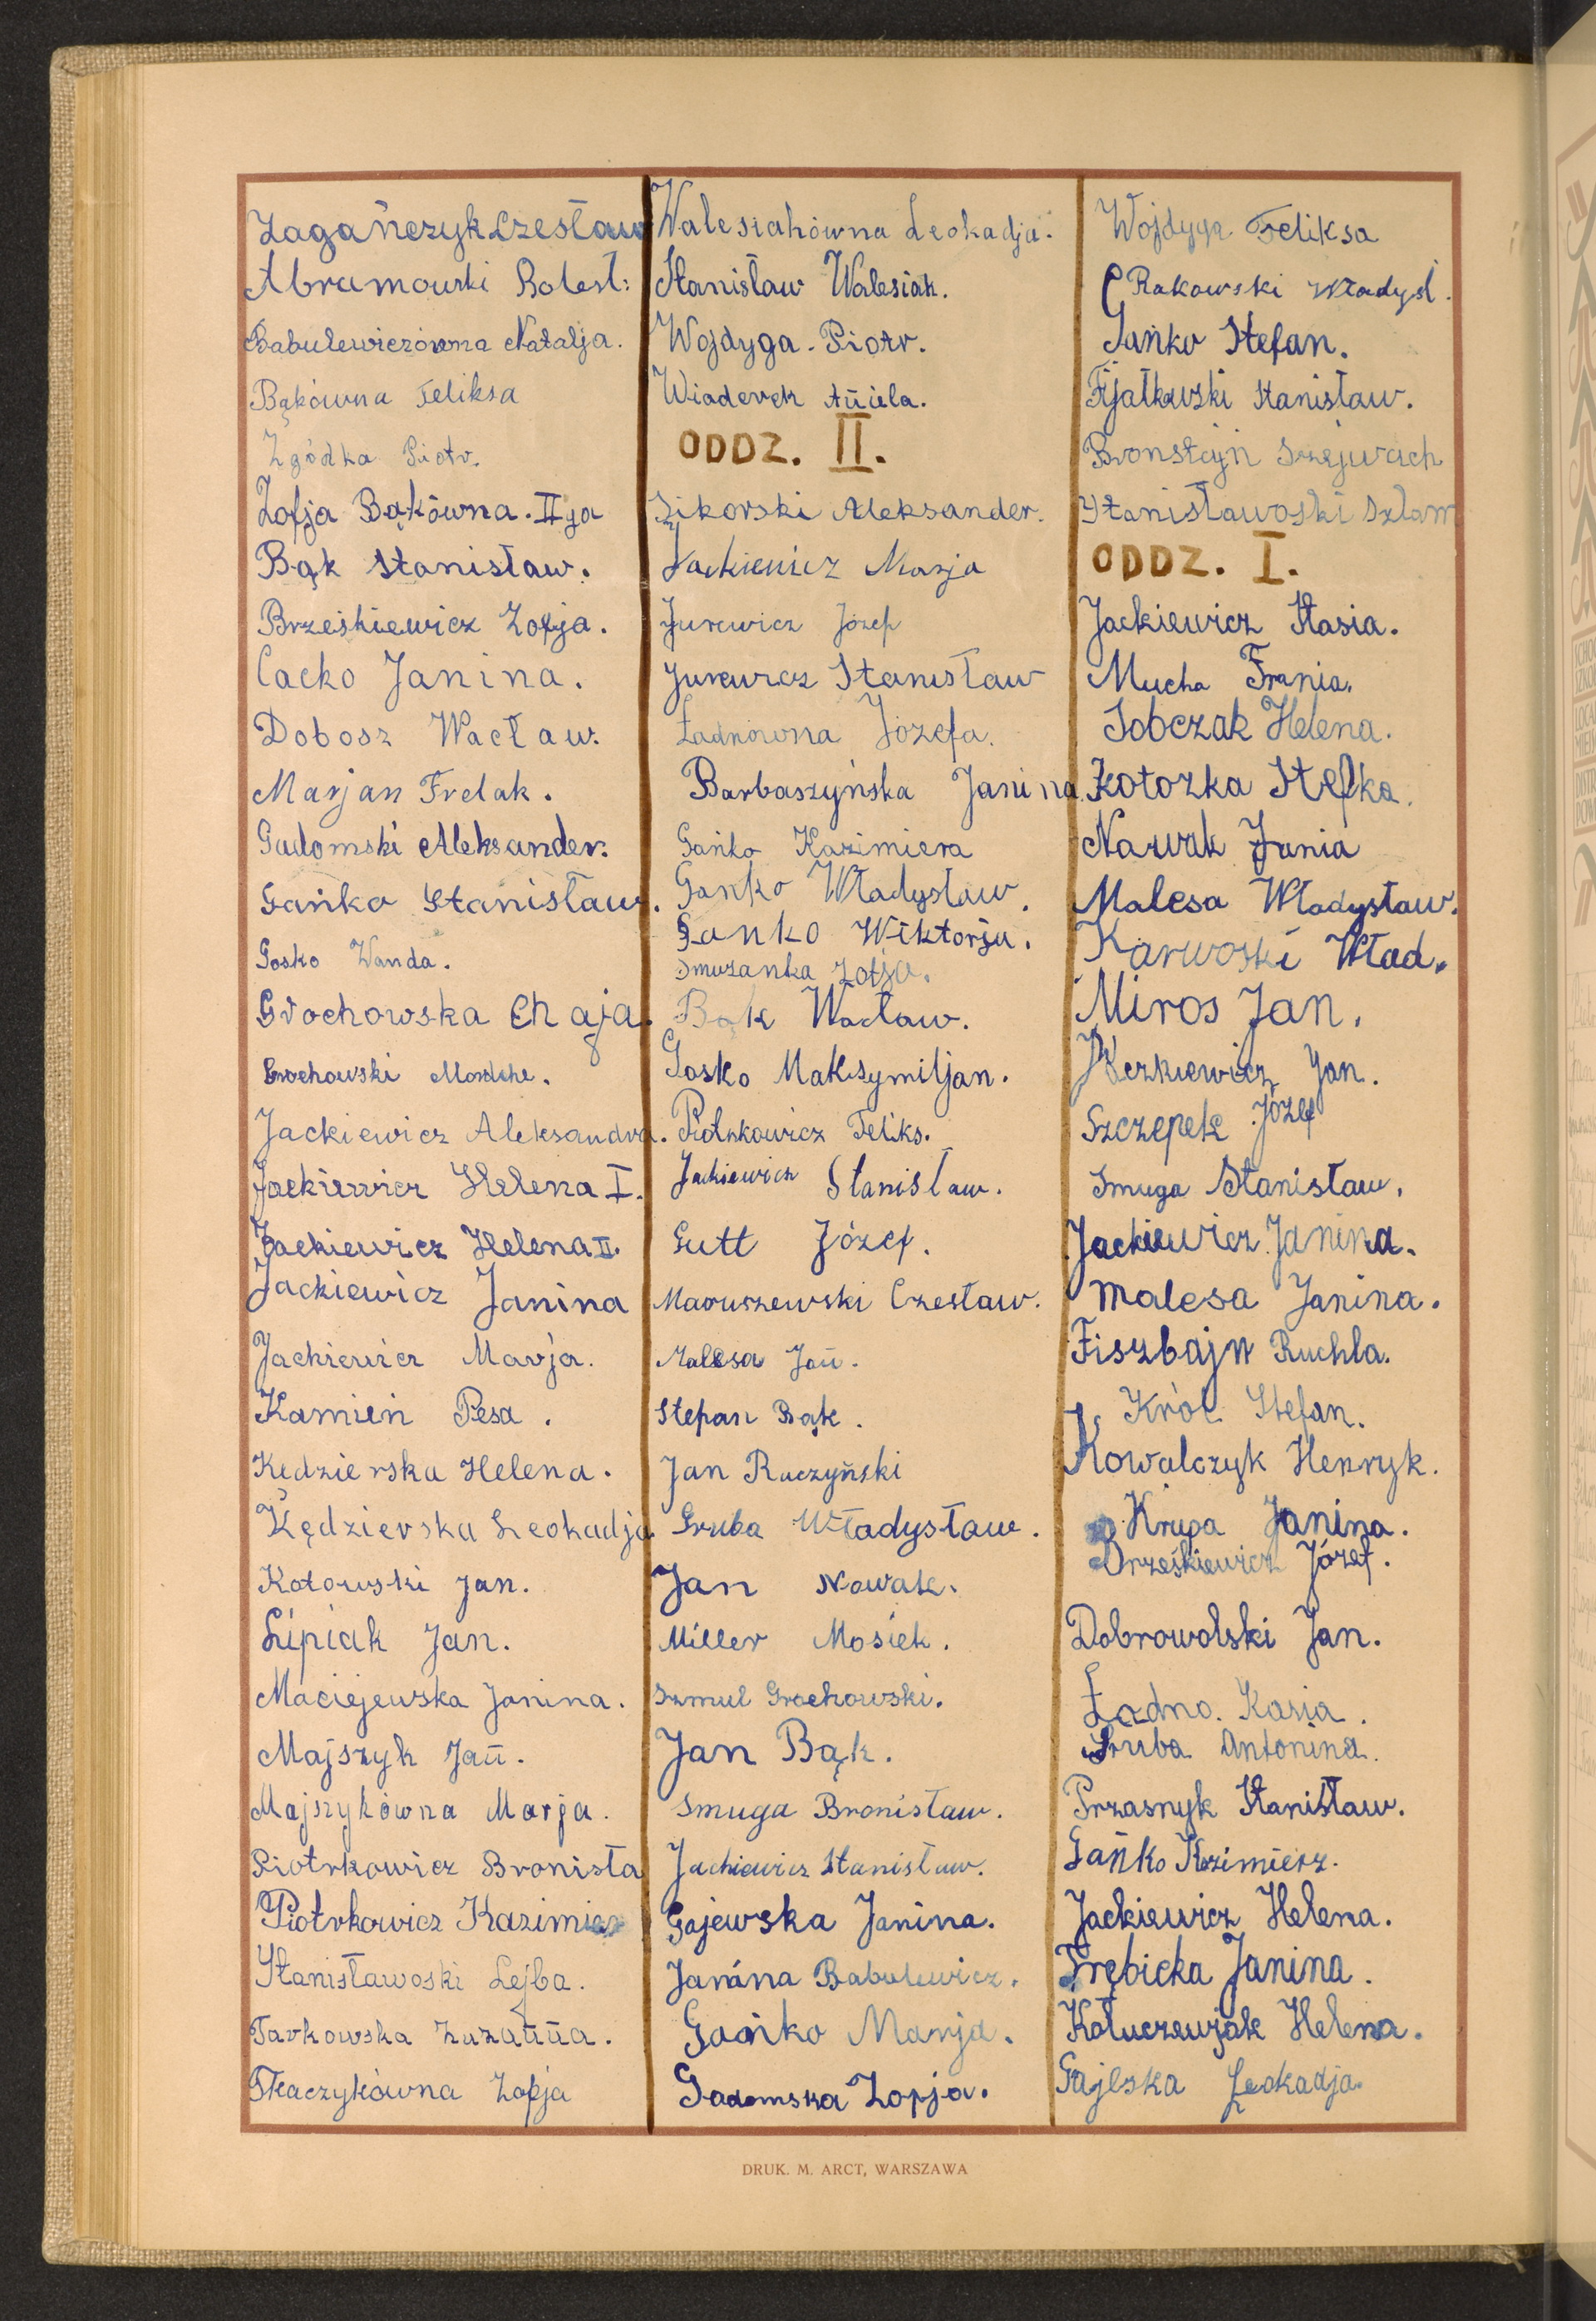 Zagańczyk Czesław
Abramowski Bolesł:
Babulewiczówna Natalja.
Bąkówna Feliksa
Zgódka Piotr.
Zofja Bąkówna. II ga
Bąk Stanisław.
Brześkiewicz Zofja.
Cacko Janina.
Dobosz Wacław.
Marjan Frelak.
Gadomski Aleksander.
Gańko Stanisław.
Gosko Wanda.
Grochowska Chaja.
Grochowski Mordche.
Jackiewicz Aleksandra.
Jackiewicz Helena I.
Jackiewicz Helena II.
Jackiewicz Janina
Jackiewicz Marja.
Kamień Pesa.
Kędzierska Helena.
Kędzierska Leokadja
Kotowski Jan.
Lipiak Jan.
Maciejewska Janina.
Majszyk Jan.
Majszykówna Marja.
Piotrkowicz Bronisła
Piotrkowicz Kazimierz
Stanisławoski Lejba.
Tarkowska Zuzanna.
Tkaczykówna Zofja
Walesiakówna Leokadja.
Stanisław Walesiak.
Wojdyga. Piotr.
Wiaderek Aniela.
ODDZ. II.
Sikorski Aleksander.
Jackiewicz Marja
Jurewicz Józef
Jurewicz Stanisław
Ładnówna Józefa.
Barbaszyńska Janina.
Gańko Kazimiera
Gańko Władysław.
Gańko Wiktorja.
Smużanka Zofja.
Bąk Wacław.
Gosko Maksymiljan.
Piotrkowicz Feliks.
Jackiewicz Stanisław.
Gutt Józef.
Maruszewski Czesław.
Malesa Jan.
Stefan Bąk.
Jan Raczyński
Gruba Władysław.
Jan Nowak.
Miller Mosiek.
Szmul Grochowski.
Jan Bąk.
Smuga Bronisław.
Jackiewicz Stanisław.
Gajewska Janina.
Janina Babulewicz.
Gańko Marja.
Gadomska Zofja.
Wojdyga Feliksa
Rakowski Władysł.
Gańko Stefan.
Fijałkowski Stanisław.
Bronsztejn Szejwach
Stanisławoski Szlam
ODDZ. I.
Jackiewicz Stasia.
Mucha Frania.
Sobczak Helena.
Kotozka Stefka.
Nowak Jania
Malesa Władysław.
Karwoski Wład.
Miros Jan.
Jan.
Szczepek Józef
Smuga Stanisław.
Jackiewicz Janina.
Malesa Janina.
Fiszbajn Ruchla.
Król Stefan.
Kowalczyk Henryk.
Krupa Janina.
Brześkiewicz Józef.
Dobrowolski Jan.
Ładno. Kasia.
Gruba Antonina.
Przasnyk Stanisław.
Gańko Kazimierz.
Jackiewicz Helena.
Trębicka Janina.
Helena.
Gajeska Leokadja.
DRUK. M. ARCT, WARSZAWA